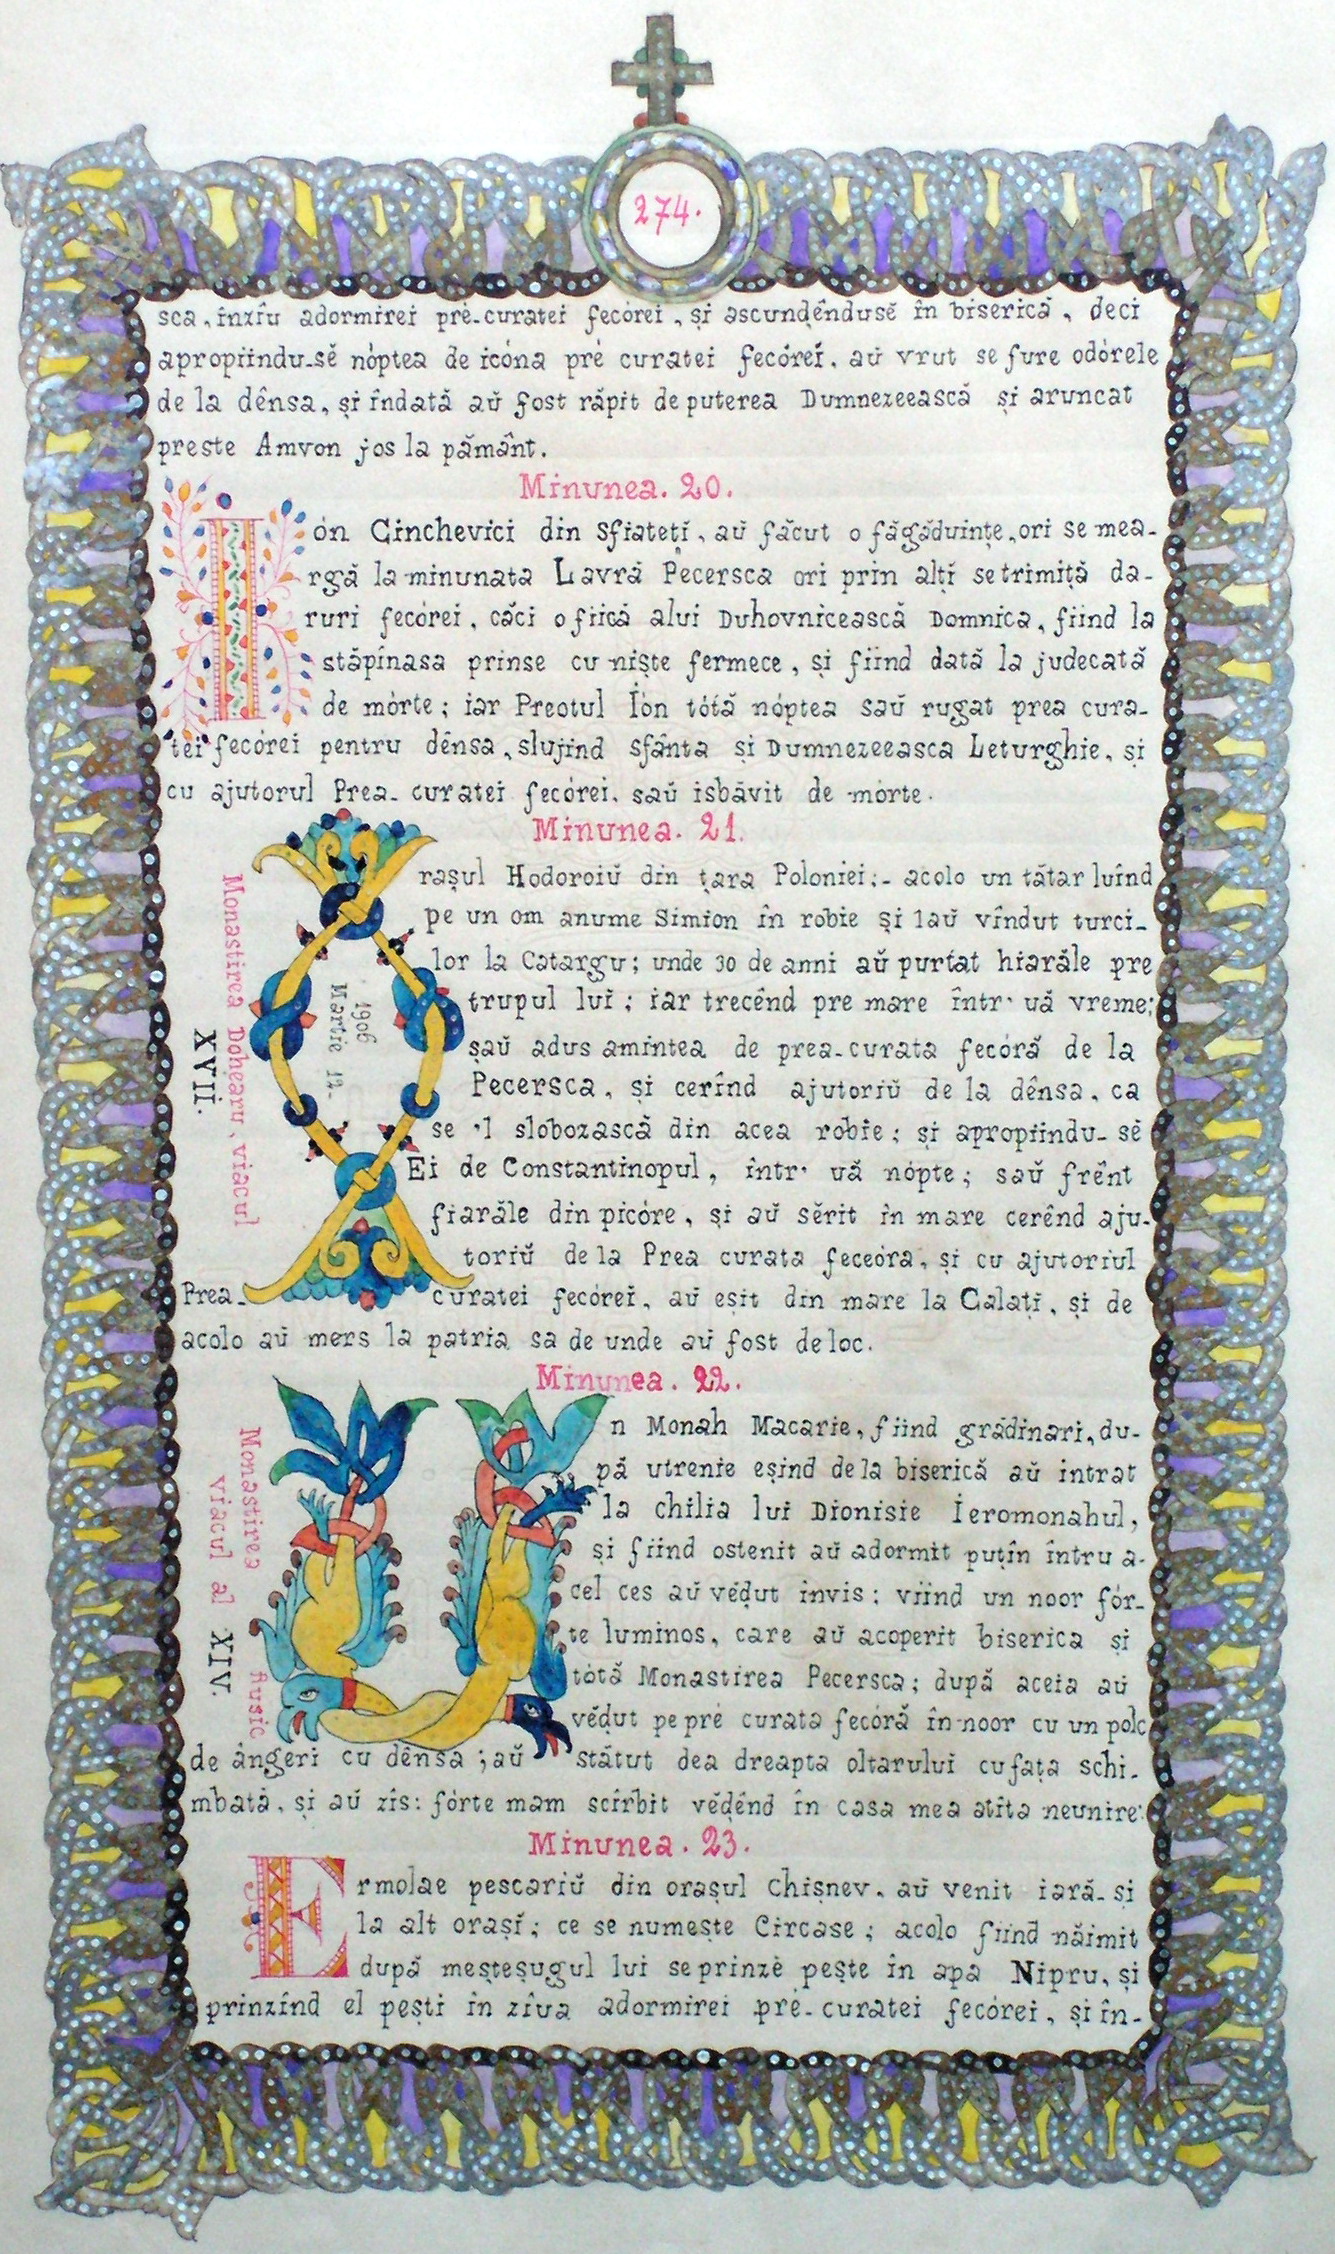 274.
sca, inziŭ adormirei pré-curatei fecórei, și ascundêndusĕ în biserică, deci
apropiindu-sĕ nóptea de icóna pré curatei fecóreĭ, aŭ vrut se fure odórele
de la dênsa, și îndată aŭ fost răpit de puterea Dumnezeească și aruncat
preste Amvon jos la pământ.
Minunea. 20.
Ión Ginchevici din Sfiatetĭ, aŭ făcut o făgăduințe, ori se mea-
rgă la minunata Lavră Pecersca ori prin alțĭ se trimiță da-
ruri fecórei, căci o fiică aluĭ Duhovnicească Domnica, fiind la
stăpînasa prinse cu niște fermece, și fiind dată la judecată
de mórte; iar Preotul Ión tótă nóptea saŭ rugat prea cura-
tei fecórei pentru dênsa, slujind sfânta și Dumnezeeasca Leturghie, și
cu ajutorul Prea-curatei fecórei, saŭ isbăvit de mórte.
Minunea. 21.
Orașul Hodoroiŭ din țara Poloniei;- acolo un tătar luînd
pe un om anume Simion în robie și lau vîndut turci-
lor la Catargu; unde 30 de anni aŭ purtat hiarăle pre
trupul luĭ; iar trecênd pre mare într' uă vreme;
șaŭ adus amintea de prea-curata fecóră de la
Pecersca, și cerînd ajutoriŭ de la dênsa, ca
se 'l slobozască din acea robie; și apropiindu-sĕ
Ei de Constantinopul, într' uă nópte; saŭ frênt
fiarăle din picóre, și aŭ sĕrit in mare cerênd aju-
toriŭ de la Prea curata feceóra, și cu ajutoriul
Prea-curatei fecóreĭ, aŭ eșit din mare la Galațĭ, și de
acolo aŭ mers la patria sa de unde aŭ fost de loc.
Monastirea Dohearu, viacul
XVII.
1906
Martie 12.
Minunea. 22.
Un Monah Macarie, fiind grădinari, du-
pă utrenie eșind de la biserică aŭ intrat
la chilia luĭ Dionisie Ieromonahul,
și fiind ostenit aŭ adormit puțin întru a-
cel ces aŭ vĕḑut invis; viind un noor fór-
te luminos, care aŭ acoperit biserica și
tótă Monastirea Pecersca; după aceia aŭ
vĕḑut pe pré curata fecóră în noor cu un polc
de ângeri cu dênsa; aŭ stătut dea dreapta oltaruluĭ cu fața schi-
mbată, și aŭ zis: fórte mam scîrbit vĕḑênd în casa mea atîta neunire:
Monastirea Rusic
viacul al XIV.
Minunea. 23.
Ermolae pescariŭ din orașul Chișnev, aŭ venit iară-și
la alt orașĭ; ce se numește Circase; acolo fiind năimit
după meșteșugul luĭ se prinzé pește în apa Nipru, și
prinzînd el peștĭ în zîua adormirei pré-curatei fecórei, și în-